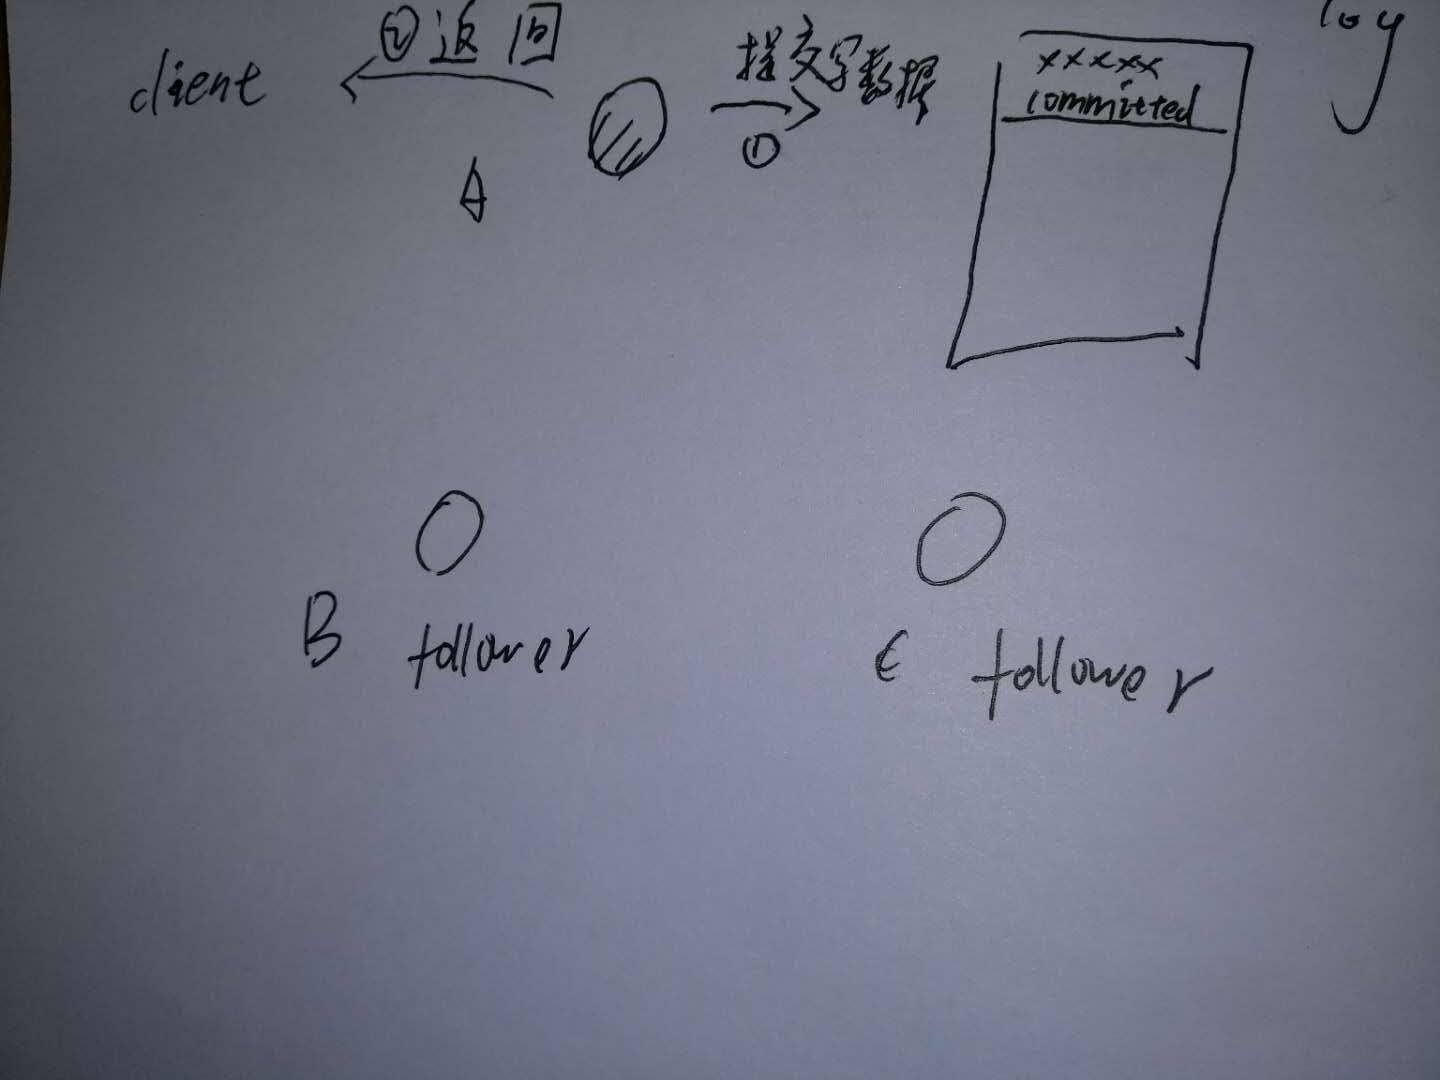 client
②返回
提交字数据
①
log
xxxxx
committed
A
B follower
C follower